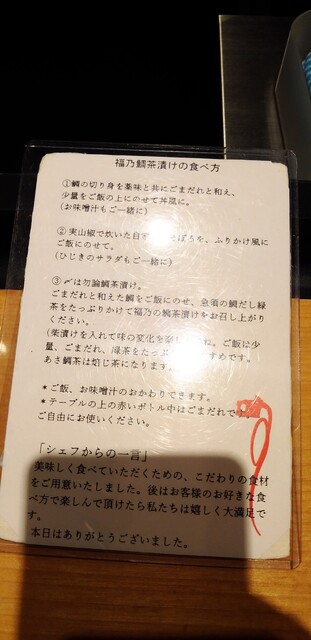 福乃鯛茶漬けの食べ方
①鯛の切り身を薬味と共にごまだれと和え、
少量をご飯の上にのせて丼風に。
(お味噌汁もご一緒に)
②実山椒で炊いた自家 ぼろを、ふりかけ風に
ご飯にのせて。
(ひじきのサラダもご一緒に)
③〆は勿論鯛茶漬け。
ごまだれと和えた鯛をご飯にのせ、急須の鯛だし緑
茶をたっぷりかけて福乃の鯛茶漬けをお召し上がり
ください。
(柴漬けを入れて味の変化を楽 ね。ご飯は少
量、ごまだれ、緑茶をたっぷ すすめです。
あさ鯛茶は焙じ茶になります。
*ご飯、お味噌汁のおかわりできます。
*テーブルの上の赤いボトル中はごまだれです。
ご自由にお使いください。
「シェフからの一言」
美味しく食べていただくための、こだわりの食材
をご用意いたしました。後はお客様のお好きな食
べ方で楽しんで頂けたら私たちは嬉しく大満足で
す。
本日はありがとうございました。